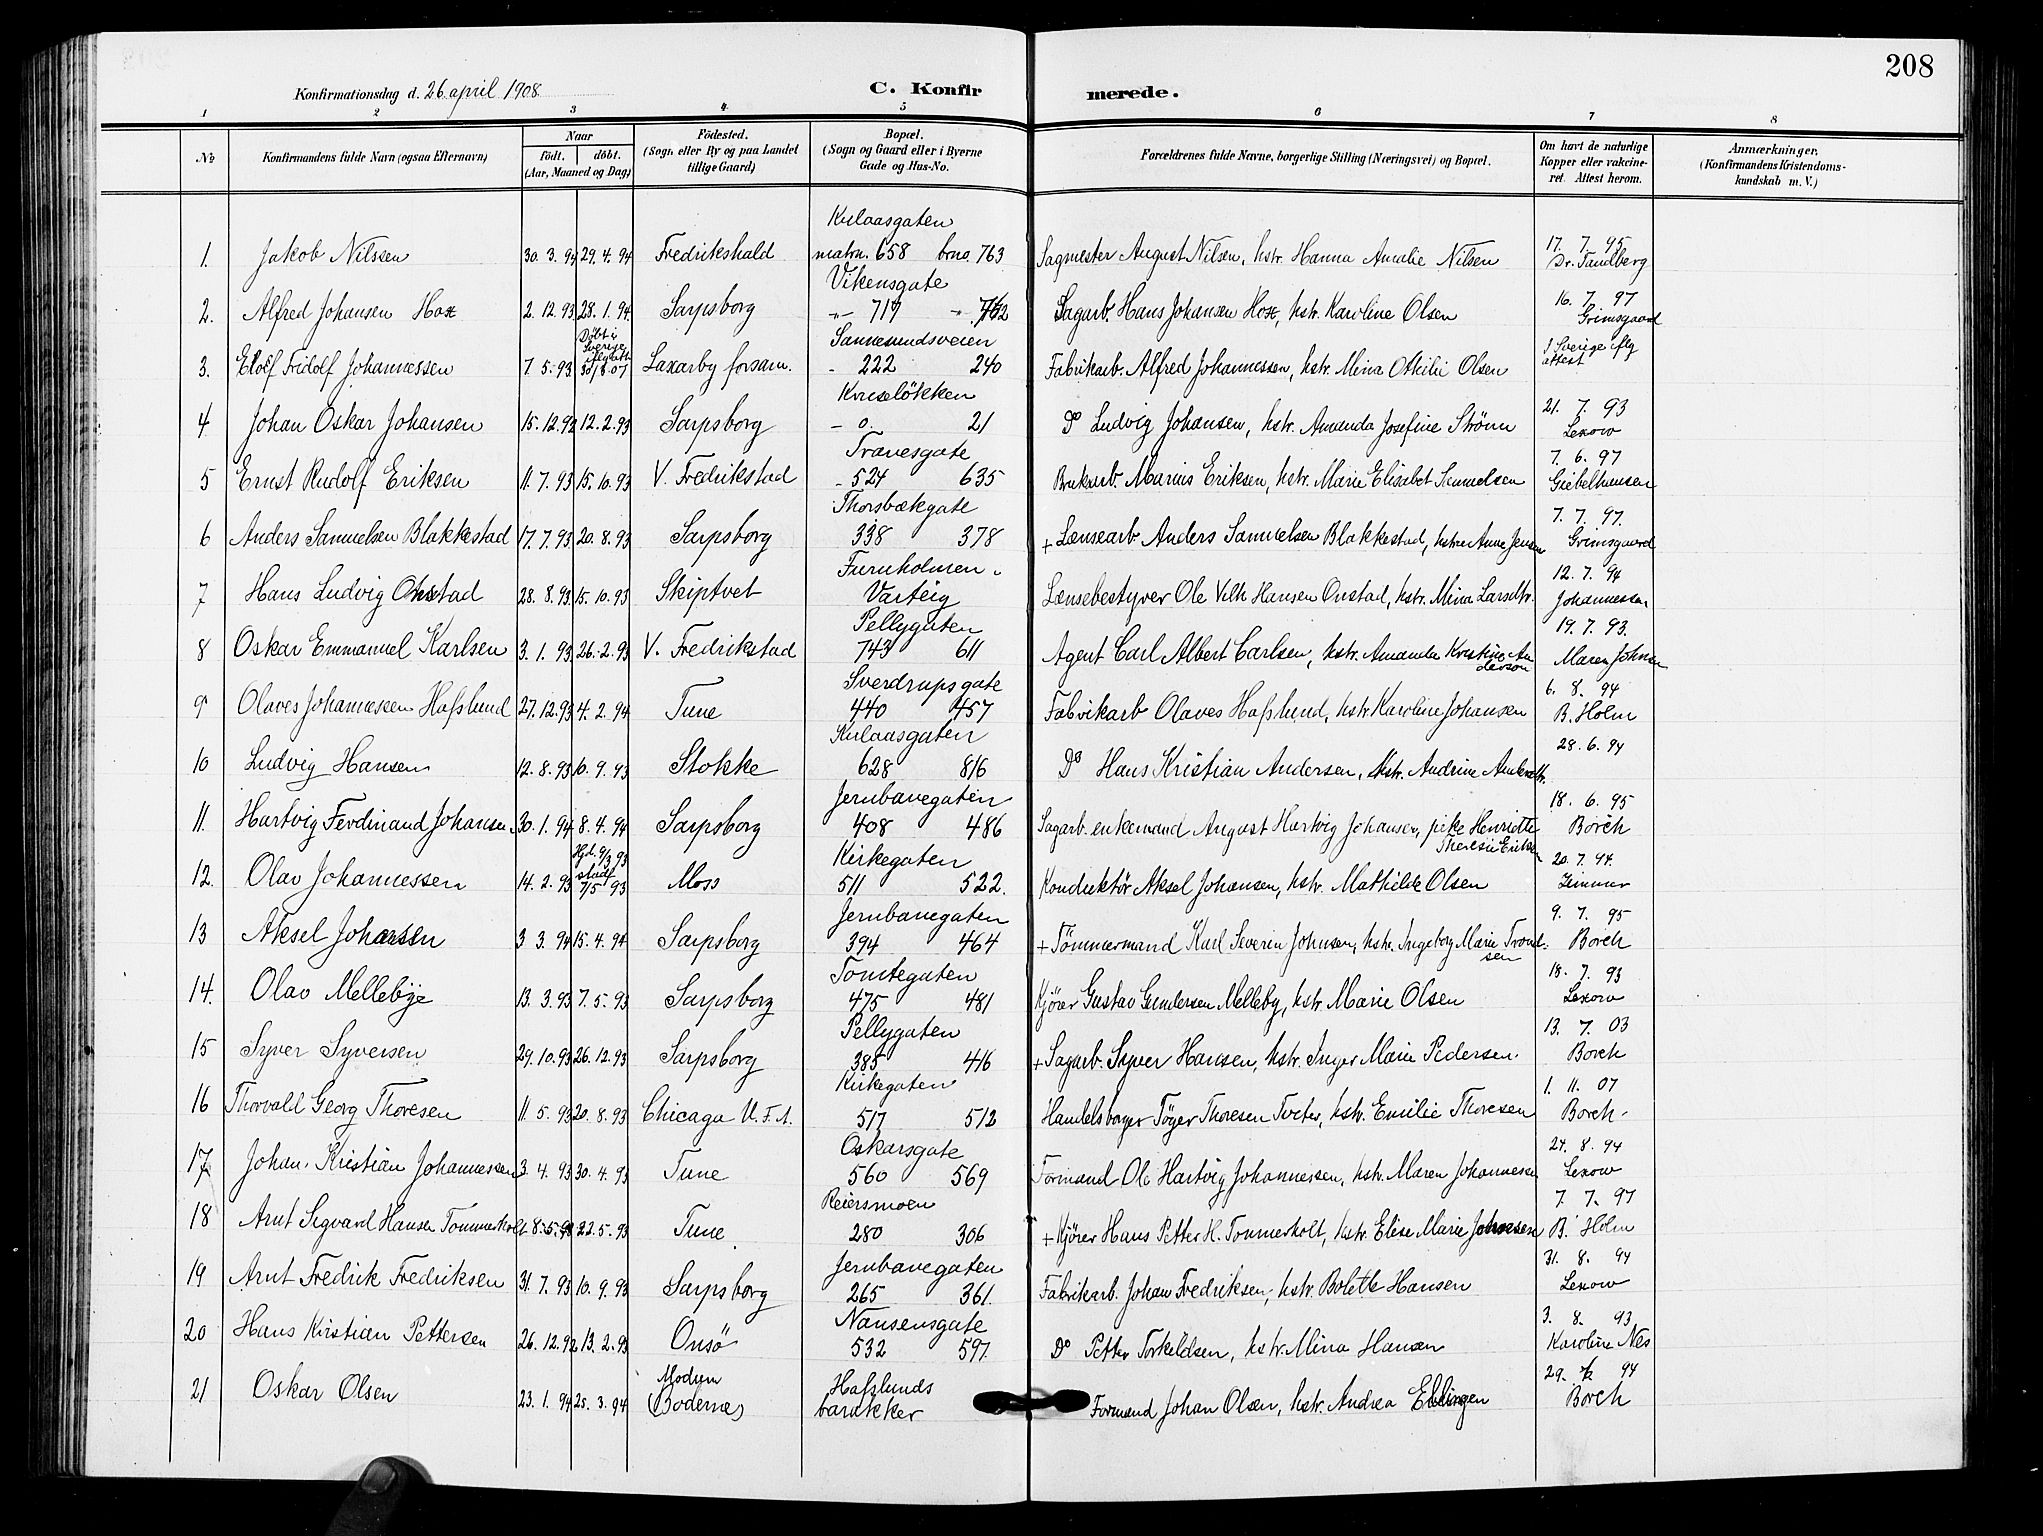 208
Konfirmationsdag d. 26. april 1908
C. Konfirmerede.
1 2 3 4 5 6 7 8
No
Konfirmandens fulde Navn (ogsaa Efternavn)
Naar
födt. döbt.
(Aar, Maaned og Dag)
Födested.
(Sogn eller By og paa Landet
tillige Gaard)
Bopæl.
(Sogn og Gaard eller i Byerne
Gade og Hus-No.
Forældrenes fulde Navne, borgerlige Stilling (Næringsvei) og Bopæl.
Om havt de naturlige
Kopper eller vakcine-
ret. Attest herom.
Anmærkninger,
(Konfirmandens Kristendoms-
kundskab m. V.)
Kulaasgaten
1. Jakob Nilssen 30. 3. 94 29. 4. 94 Fredrikshald matrn. 658 brno. 763 Sagmester August Nilsen, hstr. Hanna Amalie Nilsen 17. 7. 95 Dr. Tandberg
Vikensgate
2. Alfred Johansen Hox 2. 12. 93 28. 1. 94 Sarpsborg 719 Sagarb. Hans Johansen Hox, hstr. Karoline Olsen 16. 7. 97 Grimsgaard
Sannesundsveien
3. Elof Fridolf Johannessen 7. 5. 93 Döbt i Sverige iflg att. Laxarby forsam. 222 240 Fabrikarb. Alfred Johannessen, hstr. Mina Othilie Olsen I Sverige iflg attest
Kruseløkken
4 Johan Oskar Johansen 15. 12. 92 12. 2. 93 Sarpsborg - o. 21 Do Ludvig Johansen, hstr. Amanda Josefine Strönn 21. 7. 93 Lexow
Travesgate
5 Ernst Rudolf Eriksen 11. 7. 93 15. 10. 93 V. Fredrikstad - 524 635 Bruksarb. Marius Eriksen, hstr. Marie Elisabet Samuelsen 7. 6. 97 Giebelhausen
Thorsbækgate
6 Anders Samuelsen Blakkestad 17. 7. 93 20. 8. 93 Sarpsborg 338 378 + Lænsearb Anders Samuelsen Blakkestad, hstru Anne Jensen 7. 7. 97. Grimsgaard
Furuholmen
7 Hans Ludvig Onstad 28. 8. 93 15. 10. 93 Skiptvet Varteig Lænsebestyrer Ole Vilh Hansen Onstad, hstr. Mina Larsdtr. 12. 7. 94 Johannessen
Pellygaten
8 Oskar Emmanuel Karlsen 3. 1. 93 26. 2. 93 V. Fredrikstad 743 611 Agent Carl Albert Carlsen, hstr. Amanda Kristine Anderson 19. 7. 93. Maren Johnsen
Sverdrupsgate
9 Olaves Johannessen Hafslund 27. 12. 93 4. 2. 94 Tune 440 457 Fabrikarb Olaves Hafslund, hstr Karoline Johansen 6. 8. 94 B. Holm
Kulaasgaten
10 Ludvig Hansen 12. 8. 93 10. 9. 93 Stokke 628 816 Do Hans Kristian Andersen, hstr. Andrine Andersdtr. 28. 6. 94
Jernbanegaten
11. Hartvig Ferdinand Johansen 30. 1. 94 8. 4. 94 Sarpsborg 408 486 Sagarb. enkemand August Hartvig Johansen, pike Henriette Theresie Eriksen 18. 6. 95 Borch
Kirkegaten
12. Olav Johannessen 14. 2. 93 Hjd. 9/3 93 stadf 7/5 93 Moss 511 522. Konduktör Aksel Johansen, hstr. Mathilde Olsen 20. 7. 94. Zimmer
Jernbanegaten
13 Aksel Johansen 3 3. 94 15. 4. 94 Sarpsborg 394 464 + Tömmermand Karl Severin Johnsen, hstr. Ingeborg Marie Trondsen 9. 7. 95 Borch
Tomtegaten
14. Olav Mellebye 13. 3. 93 7. 5. 93 Sarpsborg 475 481 Kjörer Gustav Gundersen Melleby, hstr. Marie Olsen 18. 7. 93 Lexow
Pellygaten
15 Syver Syversen 29. 10. 93 26. 12. 93 Sarpsborg 385 416 + Sagarb. Syver Hansen, hstr. Inger Marie Pedersen. 13. 7. 03 Borch
Kirkegaten
16 Thorvald Georg Thoresen 11. 5. 93 20. 8. 93 Chicago U. S. A. 517 512 Handelsborger Töger Thoresen Tveter, hstr. Emilie Thoresen 1. 11. 07 Borch
Oskarsgate
17 Johan Kristian Johannessen 3. 4. 93 30. 4. 93 Tune 560 569 Formand Ole Hartvig Johannessen, hstr. Maren Johannessen 24. 8. 94 Lexow
Reiersmoen
18 Arnt Sigvard Hansen Tommerholt 8. 5. 93 22. 5. 93 Tune 280 306 + Kjörer Hans Petter H. Tommerholt, hstr. Elise Marie Johnsen 7. 7. 97 B. Holm
Jernbanegaten
19 Arnt Fredrik Fredriksen 31. 7. 93 10. 9. 93 Sarpsborg 265 361. Fabrikarb. Johan Fredriksen, hstr. Bolette Hansen 31. 8. 94 Lexow
Nansensgate
20 Hans Kristian Pettersen 26. 12. 92 13. 2. 93 Onsö 532 597 Do Petter Torkeldsen, hstr. Mina Hansen 3. 8. 93 Karoline Næs
21 Oskar Olsen 23. 1. 94 25. 3. 94 Modum (Bodernes) Hafslunds barakker Formand Johan Olsen, hstr. Andrea Ellingsen 29. 94 Borch